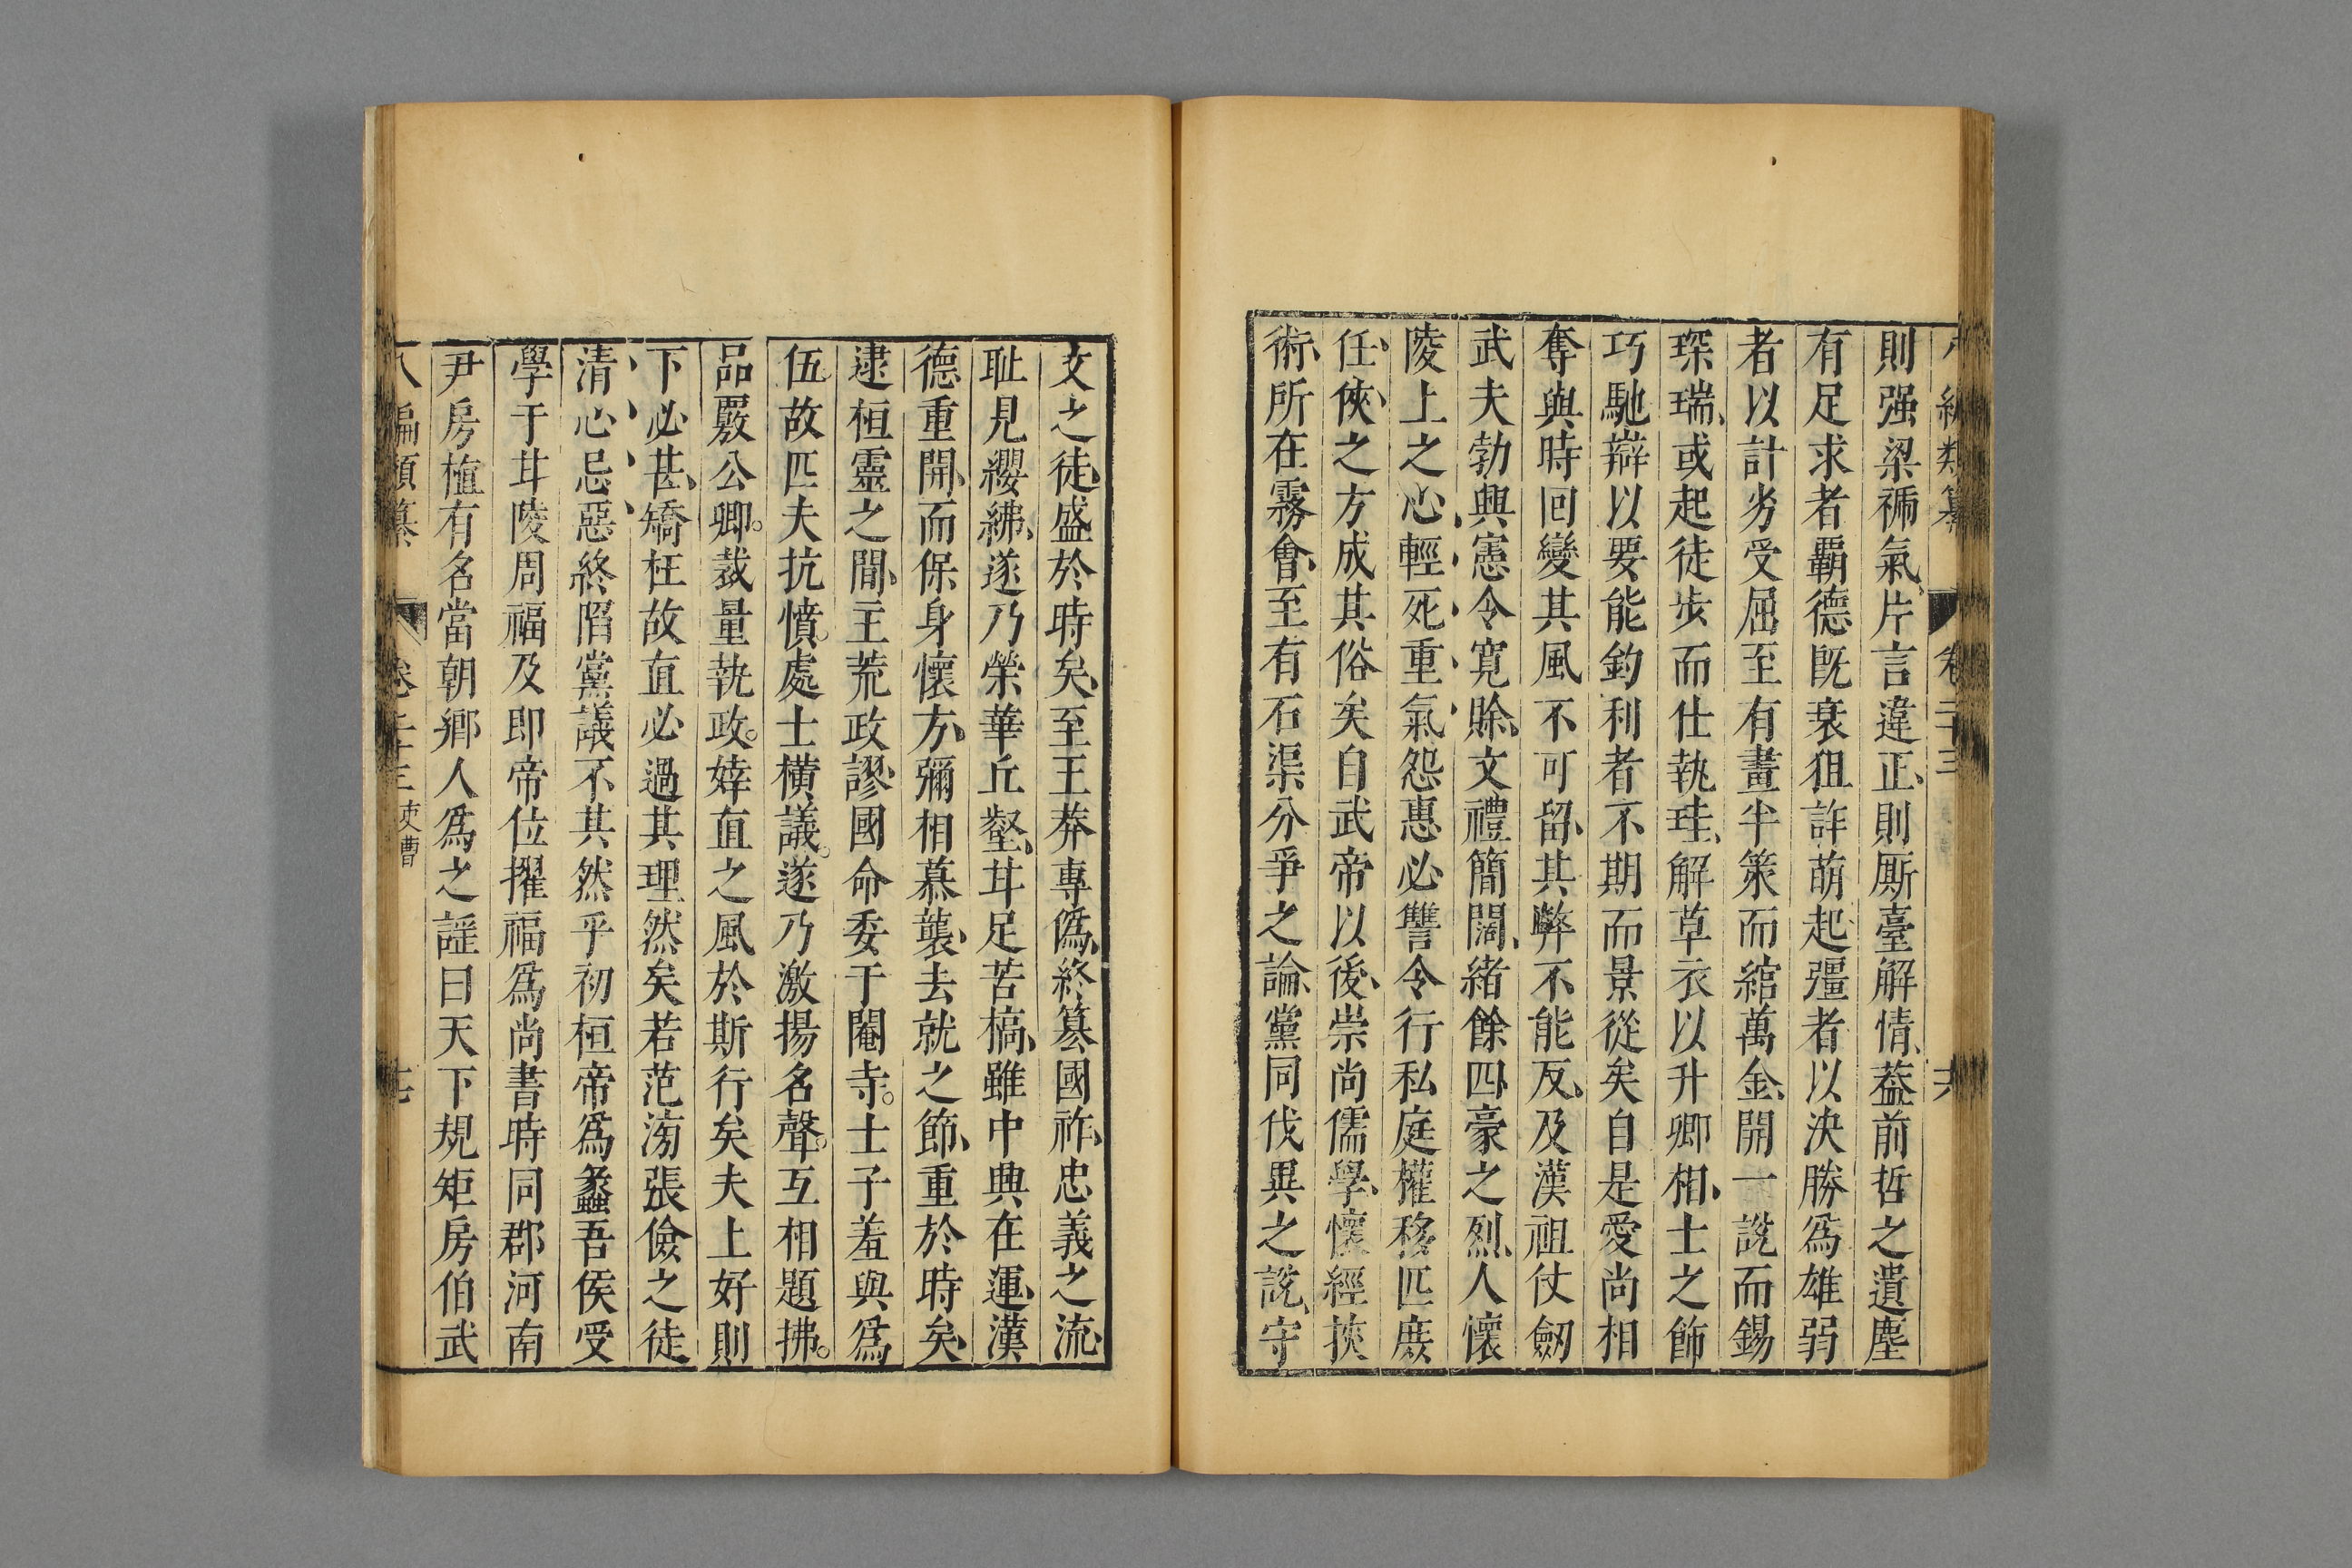 則强梁褫氣片言違正則厮臺解情葢前哲之遺塵
有足求者霸德旣衰狙詐萌起彊者以決勝爲雄弱
者以計劣受屈至有畫半策而綰萬金開一說而錫
琛瑞或起徒步而仕執珪解草衣以升卿相士之飾
巧馳辯以要能釣利者不期而景從矣自是愛尚相
奪與時回變其風不可留其弊不能反及漢祖仗劒
武夫勃興憲令寬賒文禮簡闊緒餘四豪之烈人懷
陵上之心輕死重氣怨惠必讐令行私庭權移匹庶
任俠之方成其俗矣自武帝以後崇尚儒學懷經挾
術所在霧會至有石渠分爭之論黨同伐異之說守
文之徒盛於時矣至王莽專僞終篡國祚忠義之流
耻見纓紼遂乃榮華丘壑甘足苦槁雖中興在運漢
德重開而保身懷方彌相慕襲去就之節重於時矣
逮桓靈之間主荒政謬國命委于閹寺士子羞與爲
伍故匹夫抗憤處士橫議遂乃激揚名聲互相題拂
品覈公卿裁量執政婞直之風於斯行矣夫上好則
下必甚矯枉故直必過其理然矣若范滂張儉之徒
清心忌惡終陷黨議不其然乎初桓帝爲蠡吾侯受
學于甘陵周福及即帝位擢福爲尚書時同郡河南
尹房植有名當朝鄉人爲之謡曰天下規矩房伯武
八編類纂 卷二十三 吏曹 十七